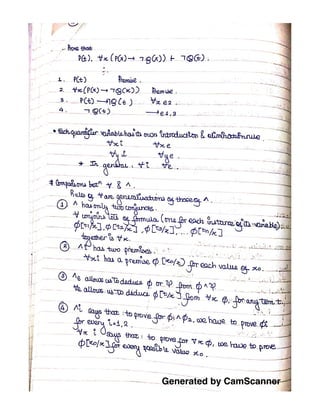 → Prove that
P(t), ∀x (P(x) → ¬Q(x)) ⊢ ¬Q(t).
1. P(t) Premise.
2. ∀x (P(x) → ¬Q(x)) Premise.
3. P(t) → ¬Q(t) ∀x e 2
4. ¬Q(t) → e 1,3
• Each quantifier variable has its own introduction & elimination rule
∀x i ∀x e
∀y i ∀y e
* In general, ∀i ∀e.
* Comparisons betn ∀ & ∧.
Rules of ∀ are generalizations of those of ∧.
① ∧ has only two conjuncts.
∀ conjoins lots of formula (one for each instance of its variable)
ϕ[t1/x], ϕ[t2/x], ϕ[t3/x] ... ϕ[tn/x]
together is ∀x.
② ∧i has two premises.
∀x i has a premise ϕ[x0/x] for each value of x0.
③ ∧e allows us to deduce ϕ or ψ from ϕ ∧ ψ
∀e allows us to deduce ϕ[t/x] from ∀x ϕ, for any term t.
④ ∧i says that : to prove for ϕ1 ∧ ϕ2, we have to prove ϕi
for every i=1,2.
∀x i says that : to prove for ∀x ϕ, we have to prove
ϕ[x0/x] for every possible value x0.
Generated by CamScanner